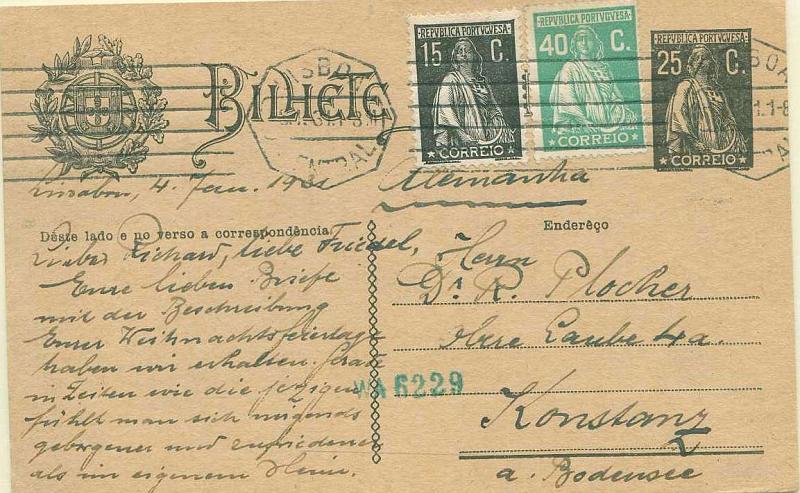 REPUBLICA PORTUGUESA
15 C.
CORREIO
REPUBLICA PORTUGUESA
40 C.
CORREIO
REPUBLICA PORTUGUESA
25 C.
CORREIO
BILHETE
Lissabon, 4. Jan.
Alemanha
Dêste lado e no verso a correspondência
Endereço
Lieber Richard, liebe Friedel,
Eure lieben Briefe
mit der Beschreibung
Eurer Weihnachtsfeiertage
haben wir erhalten. Grade
in Zeiten wie die jezigen
fühlt man sich nirgends
geborgener und zufriedener
als im eigenem Heim.
Herrn
Dr. R. Plocher
Obere Laube 4a.
WA 6229
Konstanz
a. Bodensee